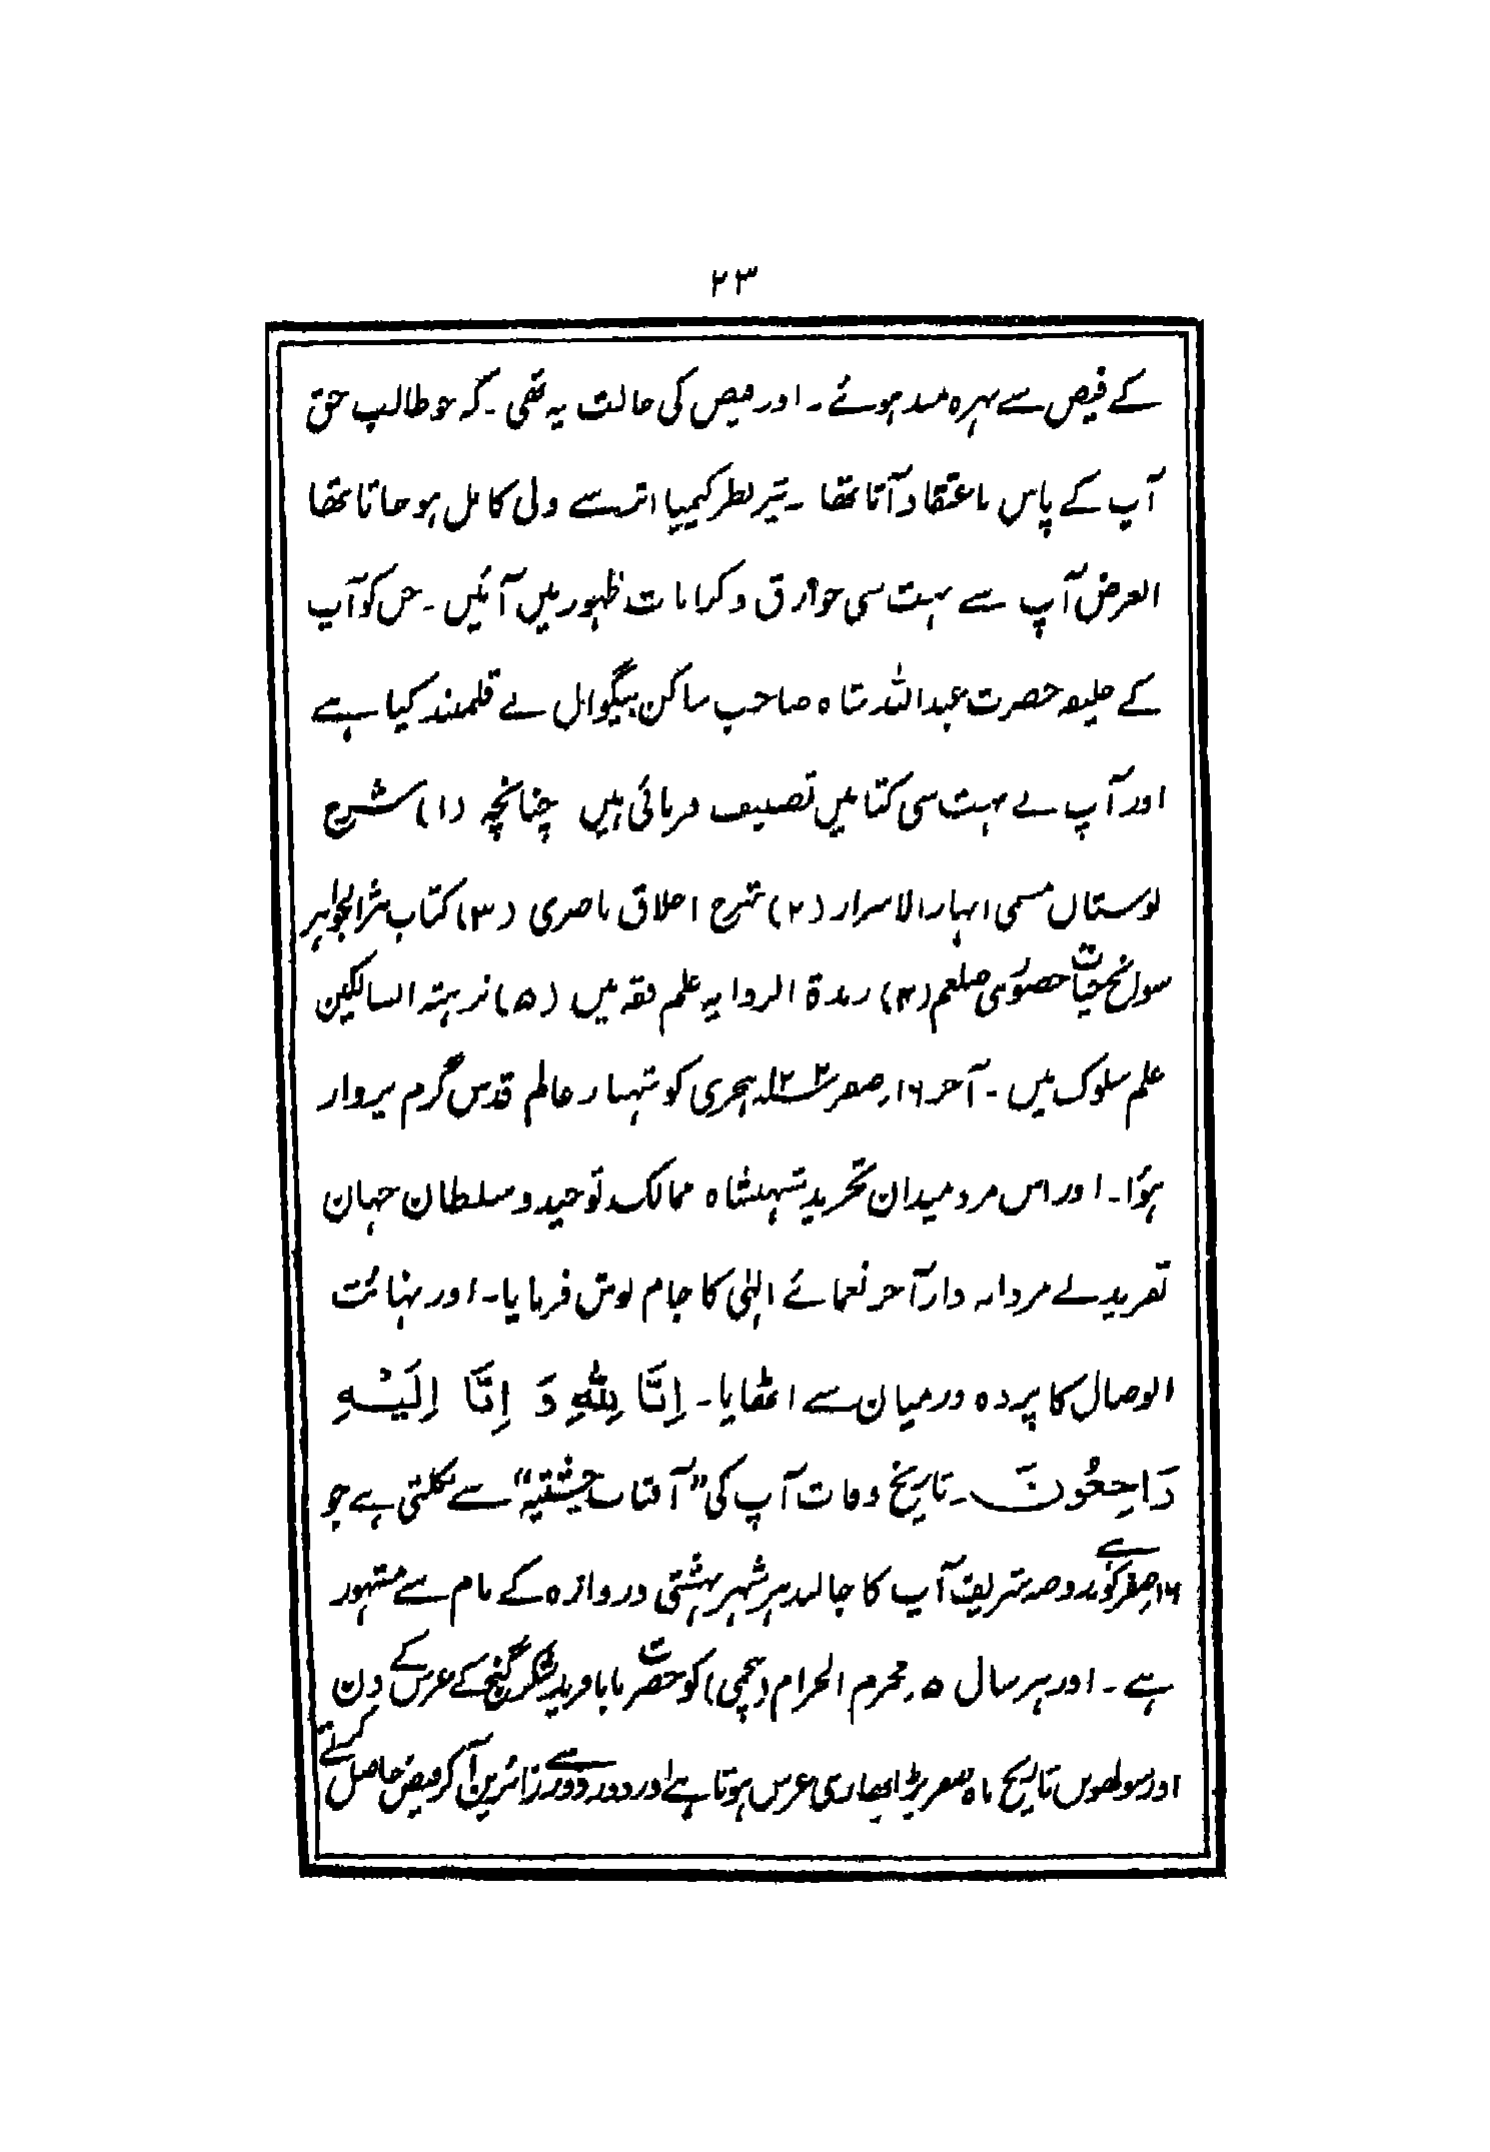 ۲۳
کے فیض سے بہرہ مند ہوئے ۔ اور فیض کی حالت یہ تھی ۔ کہ جو طالب حق
آپ کے پاس باعتقاد آتا تھا ۔ تیر نظر کیمیا اثر سے ولی کامل ہو جاتا تھا
الغرض آپ سے بہت سی خوارق و کرامات ظہور میں آئیں ۔ جن کو آپ
کے خلیفہ حضرت عبداللہ شاہ صاحب ساکن بیگوال نے قلمبند کیا ہے
اور آپ نے بہت سی کتابیں تصنیف فرمائی ہیں چنانچہ (۱) شرح
بوستاں مسمی بہ انہار الاسرار (۲) شرح اخلاق ناصری (۳) کتاب نثر الجواہر
سوانح حیات حضوری صلعم (۴) زبدۃ الروایہ علم فقہ میں (۵) نزہتہ السالکین
علم سلوک میں ۔ آخر ۱۶ صفر ہجری کو شہباز عالم قدس گرم پرواز
ہؤا ۔ اور اس مرد میدان تجرید شہنشاہ ممالک توحید و سلطان جہان
تفرید نے مردانہ وار آخر نعمائے الہٰی کا جام نوش فرمایا ۔ اور نہائت
الوصال کا پردہ درمیان سے اٹھایا ۔ اِنَّا لِلّٰہِ وَ اِنَّا اِلَیْہِ
رَاجِعُونَ ۔ تاریخ وفات آپ کی "آفتاب چشتیہ" سے نکلتی ہے جو
۱۶ صفر کو ہے روضہ شریف آپ کا جالندہر شہر بہشتی دروازہ کے نام سے مشہور
ہے ۔ اور ہر سال ۵ محرم الحرام (پنجمی) کو حضرت بابا فرید شکر گنج کے عرس کے دن
اور سولھویں تاریخ ماہ صفر بڑا بھاری عرس ہوتا ہے اور دور دور سے زائرین آ کر فیض حاصل کرتے